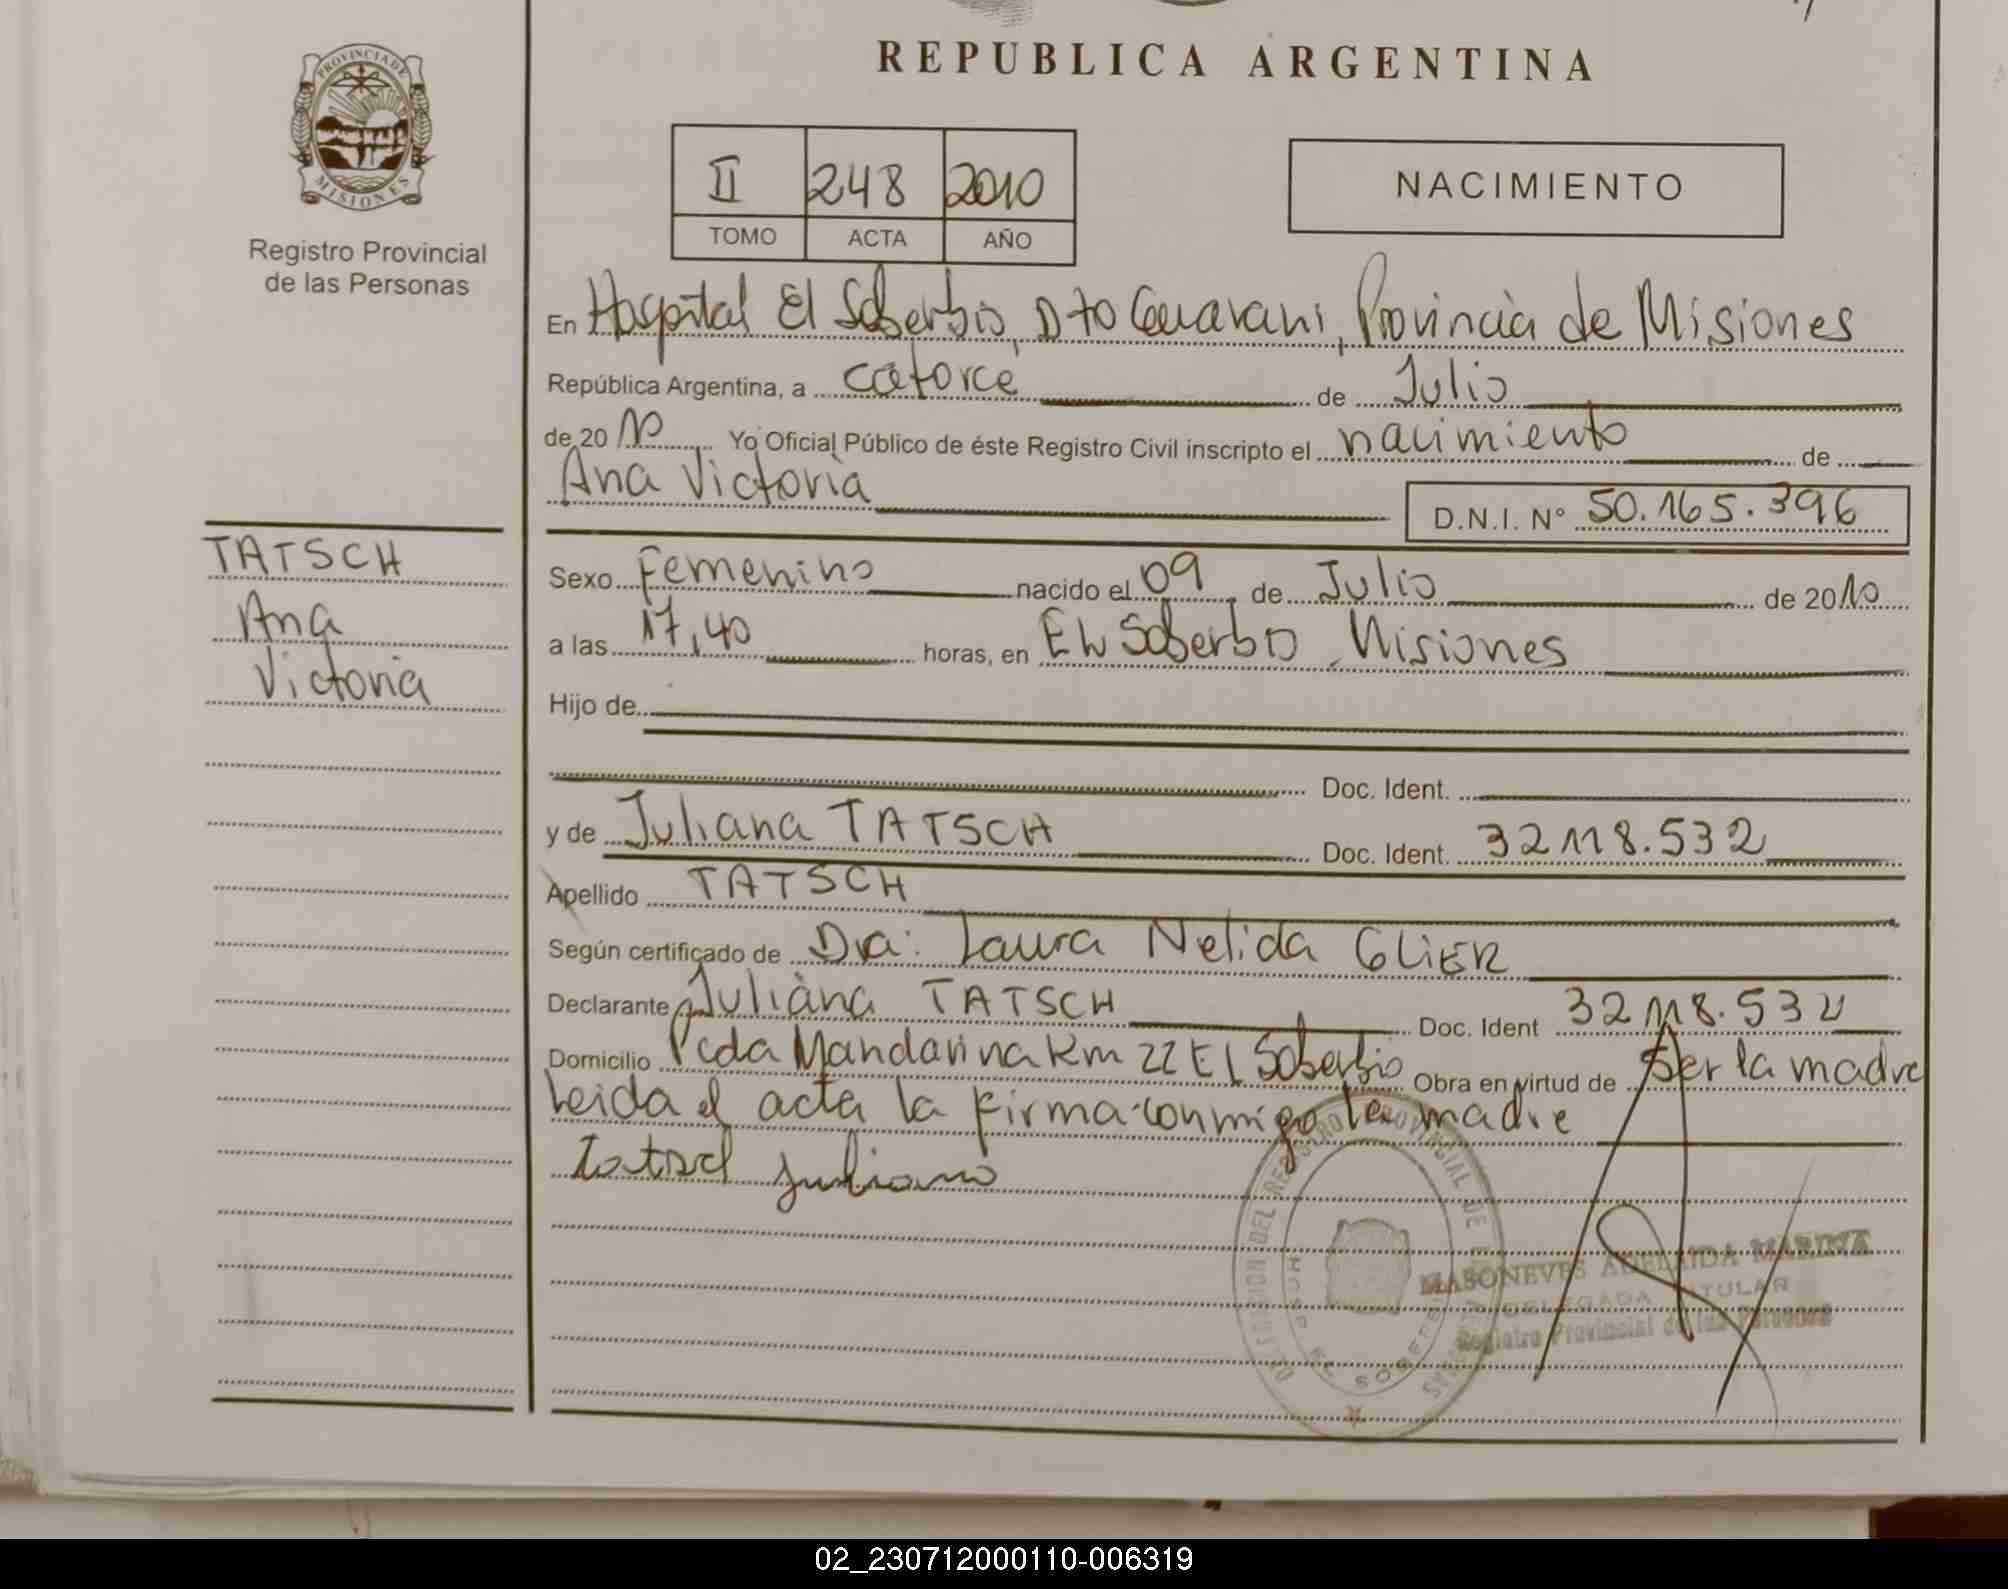 REPUBLICA ARGENTINA
PROVINCIA DE
MISIONES
Registro Provincial
de las Personas
II 248 2010
TOMO ACTA AÑO
NACIMIENTO
En Hospital El Soberbio, Dto Guarani, Provincia de Misiones
República Argentina, a catorce de Julio
de 2010 Yo Oficial Público de éste Registro Civil inscripto el nacimiento de
Ana Victoria D.N.I. N° 50.165.396
TATSCH
Ana
Victoria
Sexo Femenino nacido el 09 de Julio de 2010
a las 17,40 horas, en El Soberbio Misiones
Hijo de
Doc. Ident.
y de Juliana TATSCH Doc. Ident. 32118.532
Apellido TATSCH
Según certificado de Dra: Laura Nelida GLIER
Declarante Juliana TATSCH Doc. Ident 32118.532
Domicilio Pcda Mandarina Km 22 El Soberbio Obra en virtud de ser la madre
Leida el acta la firma conmigo la madre
Tatsch Juliana
DEL REGISTRO PROVINCIAL DE
EL SOBERBIO
MASONEVES ADELAIDA MARINA
DELEGADA TITULAR
Registro Provincial de las Personas
02_230712000110-006319